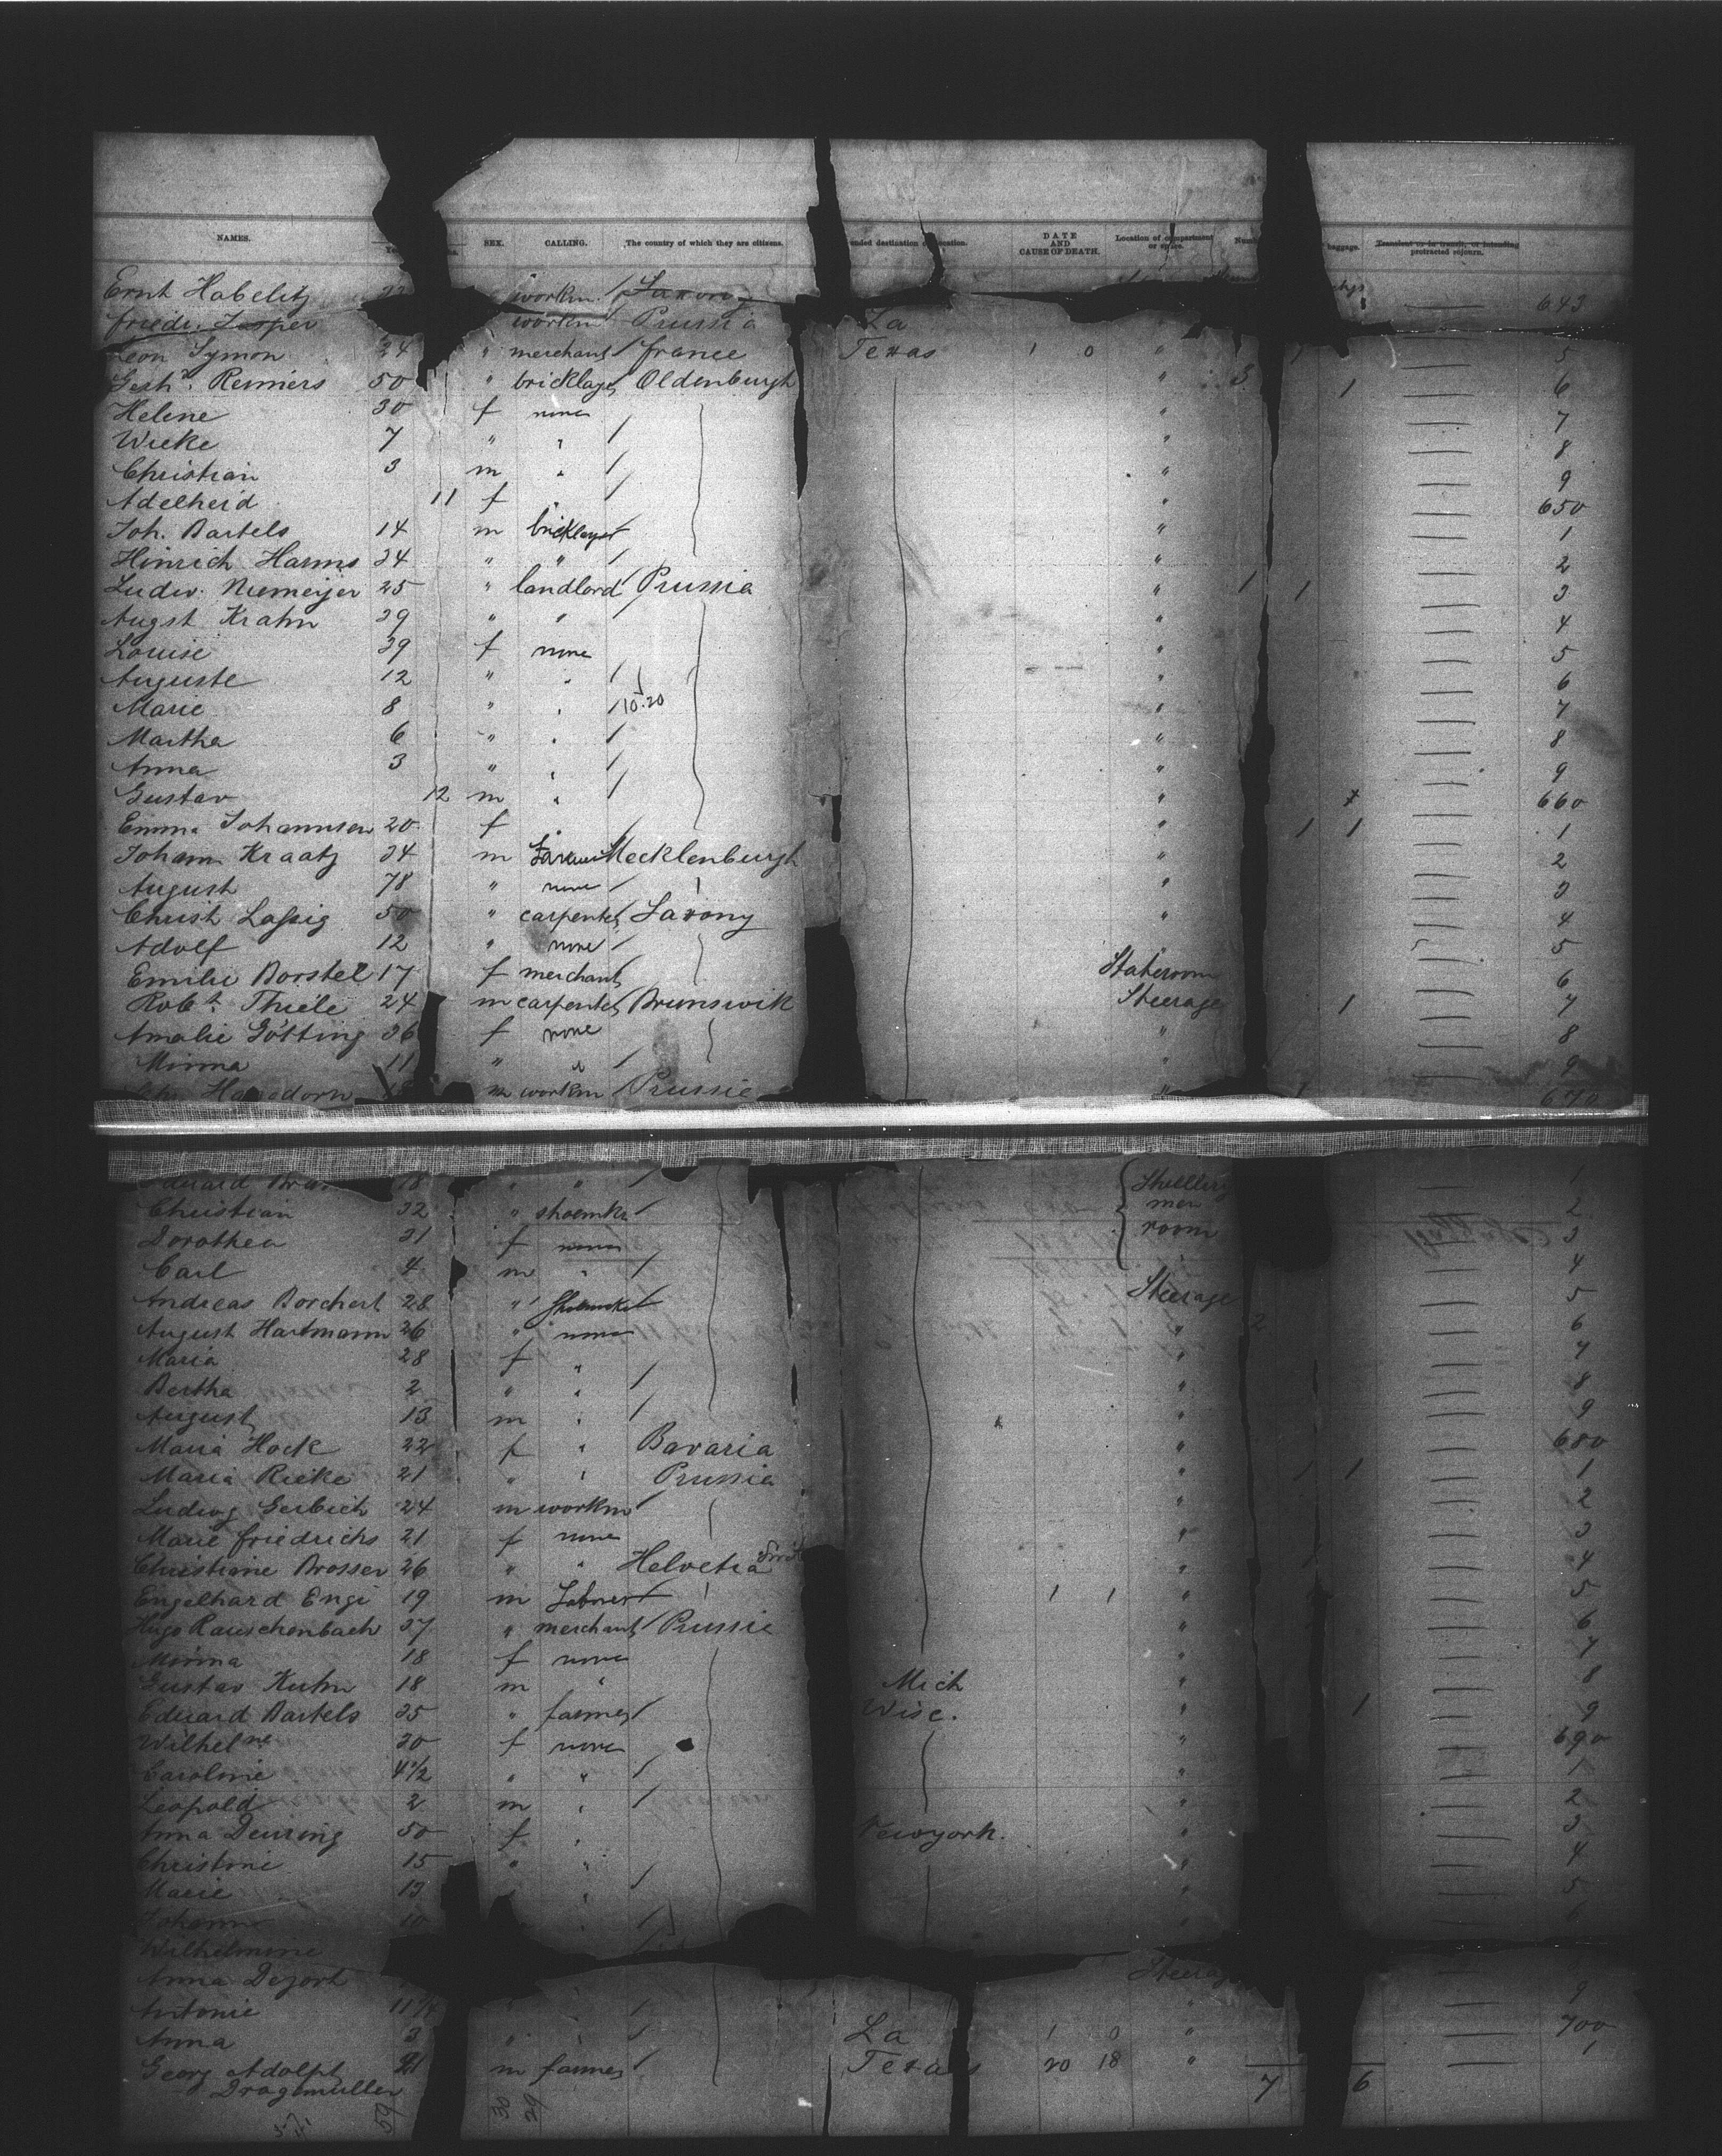 NAMES. SEX. CALLING. The country of which they are citizens. ended destination location. DATE AND CAUSE OF DEATH. Location of compartment or space. Num baggage. Transient or in transit, or intending protracted sojourn.
Ernst Habelitz workm. Saxony 643
Friedr. Jasper workm Prussia La
Leon Symon 24 " merchant France Texas 1 0 " 1 5
Gerh. Reiners 50 " bricklayer Oldenburgh " 3 1 6
Helene 30 f none " 7
Wieke 7 " " " 8
Christian 3 m " " 9
Adelheid 11 f " " 650
Joh. Bartels 14 m bricklayer " 1
Hinrich Harms 34 " " " 2
Ludw. Niemeijer 25 " landlord Prussia " 1 1 3
Augst Krahn 39 " " " 4
Louise 39 f none " 5
Auguste 12 " " " 6
Marie 8 " " 10.20 " 7
Martha 6 " " " 8
Anna 3 " " " 9
Gustav 12 m " " 660
Emma Johannsen 20 f " " 1 1 1
Johann Kraatz 34 m farmer Mecklenburgh " 2
August 78 " none " 3
Christ Lassig 50 " carpenter Saxony " 4
Adolf 12 " none 5
Emilie Borstel 17 f merchant Stateroom 6
Robt. Thiele 24 m carpenter Brunswik Steerage 1 7
Amalie Götting 36 f none " 8
Minna 11 " " " 9
Hagedorn m workm Prussia " 1 670
Eduard 18 " " 1
Christian 32 " shoemkr men 2
Dorothea 31 f none room 3
Carl 4 m " 4
Andreas Borchert 28 " Shoemaker Steerage 5
August Hartmann 26 " none " 2 6
Maria 28 f " " 7
Bertha 2 " " " 8
August 13 m " " 9
Maria Hock 22 f " Bavaria " 680
Maria Rieke 21 " " Prussia " 1 1 1
Ludwig Gerbich 24 m workm " 2
Marie Friedrichs 21 f none " 3
Christiane Brosser 26 " " Helvetia " 4
Engelhard Engi 19 m Laborer 1 1 " 5
Hugo Rauschenbach 37 " merchant Prussia " 6
Minna 18 f none " 7
Gustav Kuhn 18 m " Mich " 8
Eduard Bartels 35 " farmer Wisc. " 1 9
Wilhelne 30 f none " 690
Caroline 4 1/2 " " " 1
Leopold 2 m " " 2
Anna Deuring 50 f " Newyork. " 3
Christine 15 " " " 4
Marie 13 " " " 5
Johann 10 "
Wilhelmine
Anna Dezort Steerage
Antonie 11 " 9
Anna 3 " " La 1 0 " 700
Georg Adolph 21 m farmer Texas 20 18 " 1
Dragmuller 7 6
59 30 29